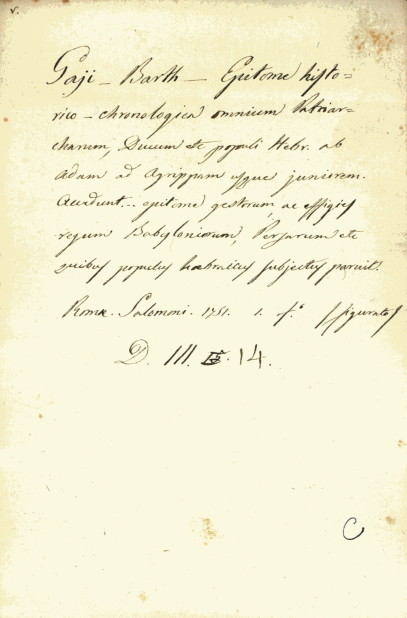 v.
Gaji - Barth - Epitome histo=
rico - chronologica omnium Patriar=
charum, Ducum etc populi Hebr. ab
Adam ad Agrippam usque juniorem.
Accedunt... epitome gestorum, ac effigies
regum Babyloniorum, Persarum etc
quibus populus hebraicus subjectus paruit.
Romæ. Salomoni. 1751. 1. f.º (figurato)
D. III. 14.
C